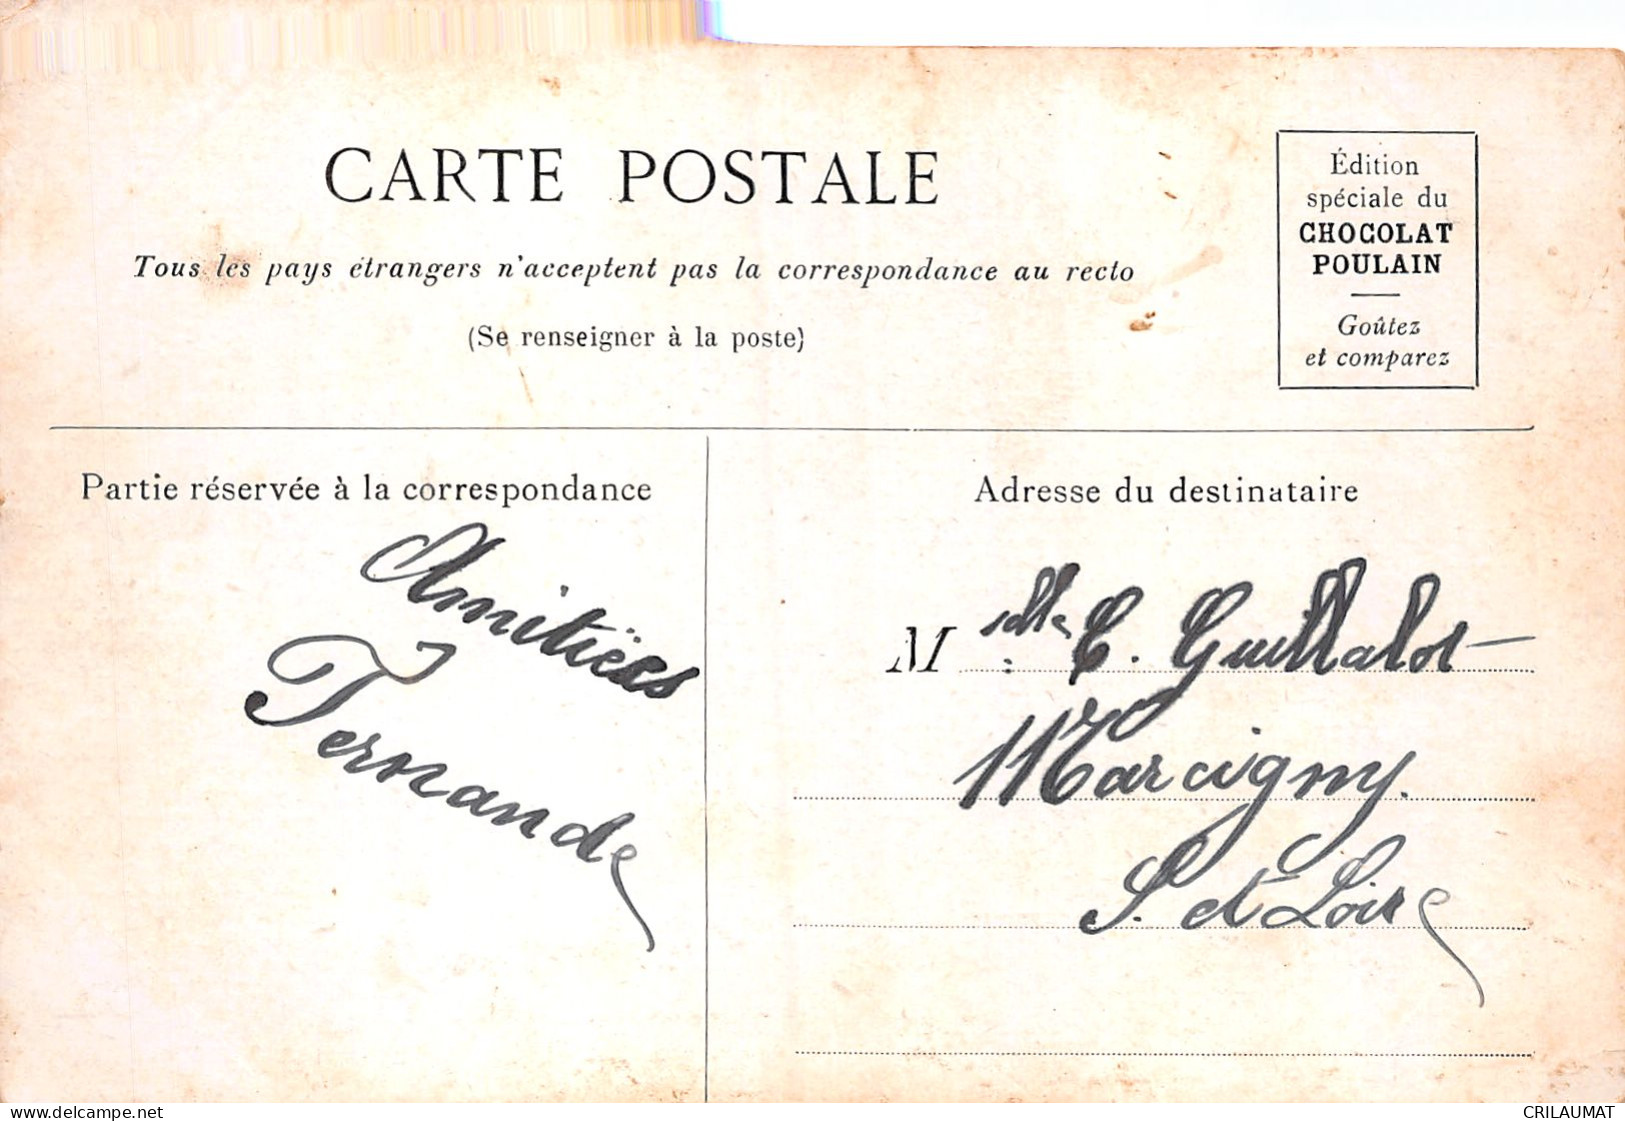 CARTE POSTALE
Tous les pays étrangers n'acceptent pas la correspondance au recto
(Se renseigner à la poste)
Édition
spéciale du
CHOCOLAT
POULAIN
Goûtez
et comparez
Partie réservée à la correspondance
Amitiés
Fernande
Adresse du destinataire
M elle E. Guillalot
Marcigny.
S. et Loire
delcampe.net
CRILAUMAT